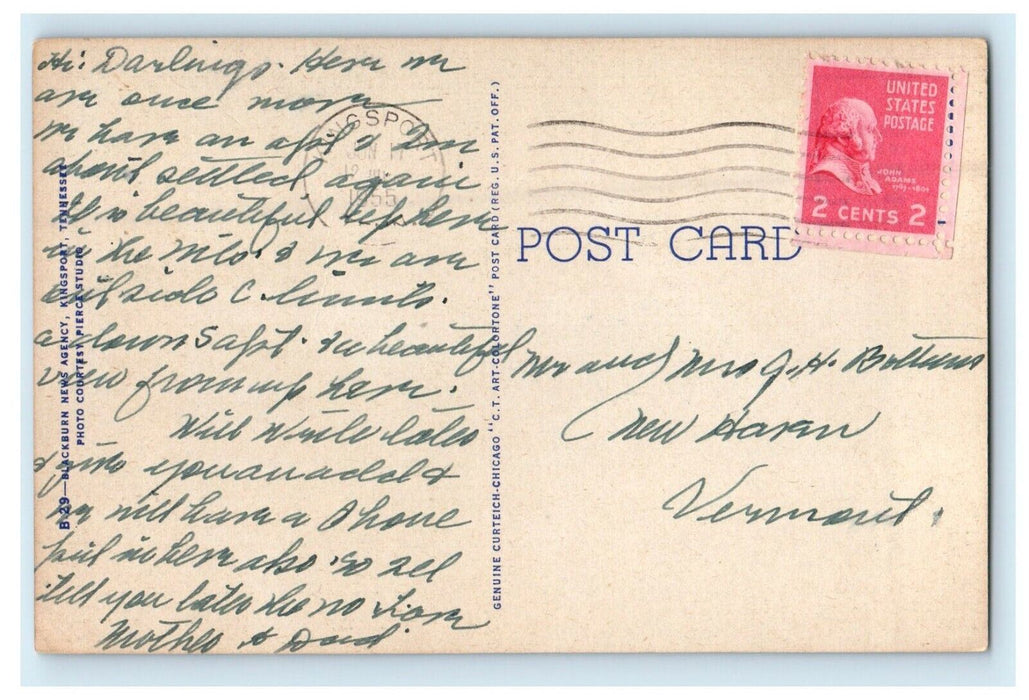 Hi: Darlings. Here we
are once more
we have an apt & I'm
about settled again
It is beautiful up here
in the Mts. & we are
outside C. limits.
a down S apt. & a beautiful
view from up here.
Will write later
& give you an add &
we will have a Phone
put in here also. So I'll
tell you later the no Love
Mother & Dad.
B-29—BLACKBURN NEWS AGENCY, KINGSPORT, TENNESSEE
PHOTO COURTESY PIERCE STUDIO
GENUINE CURTEICH-CHICAGO "C.T. ART-COLORTONE" POST CARD (REG. U.S. PAT. OFF.)
KINGSPORT
JUN 11
1955
UNITED
STATES
POSTAGE
JOHN
ADAMS
1797-1801
2 CENTS 2
POST CARD
Mr and Mrs J. H. Bottums
New Haven
Vermont.